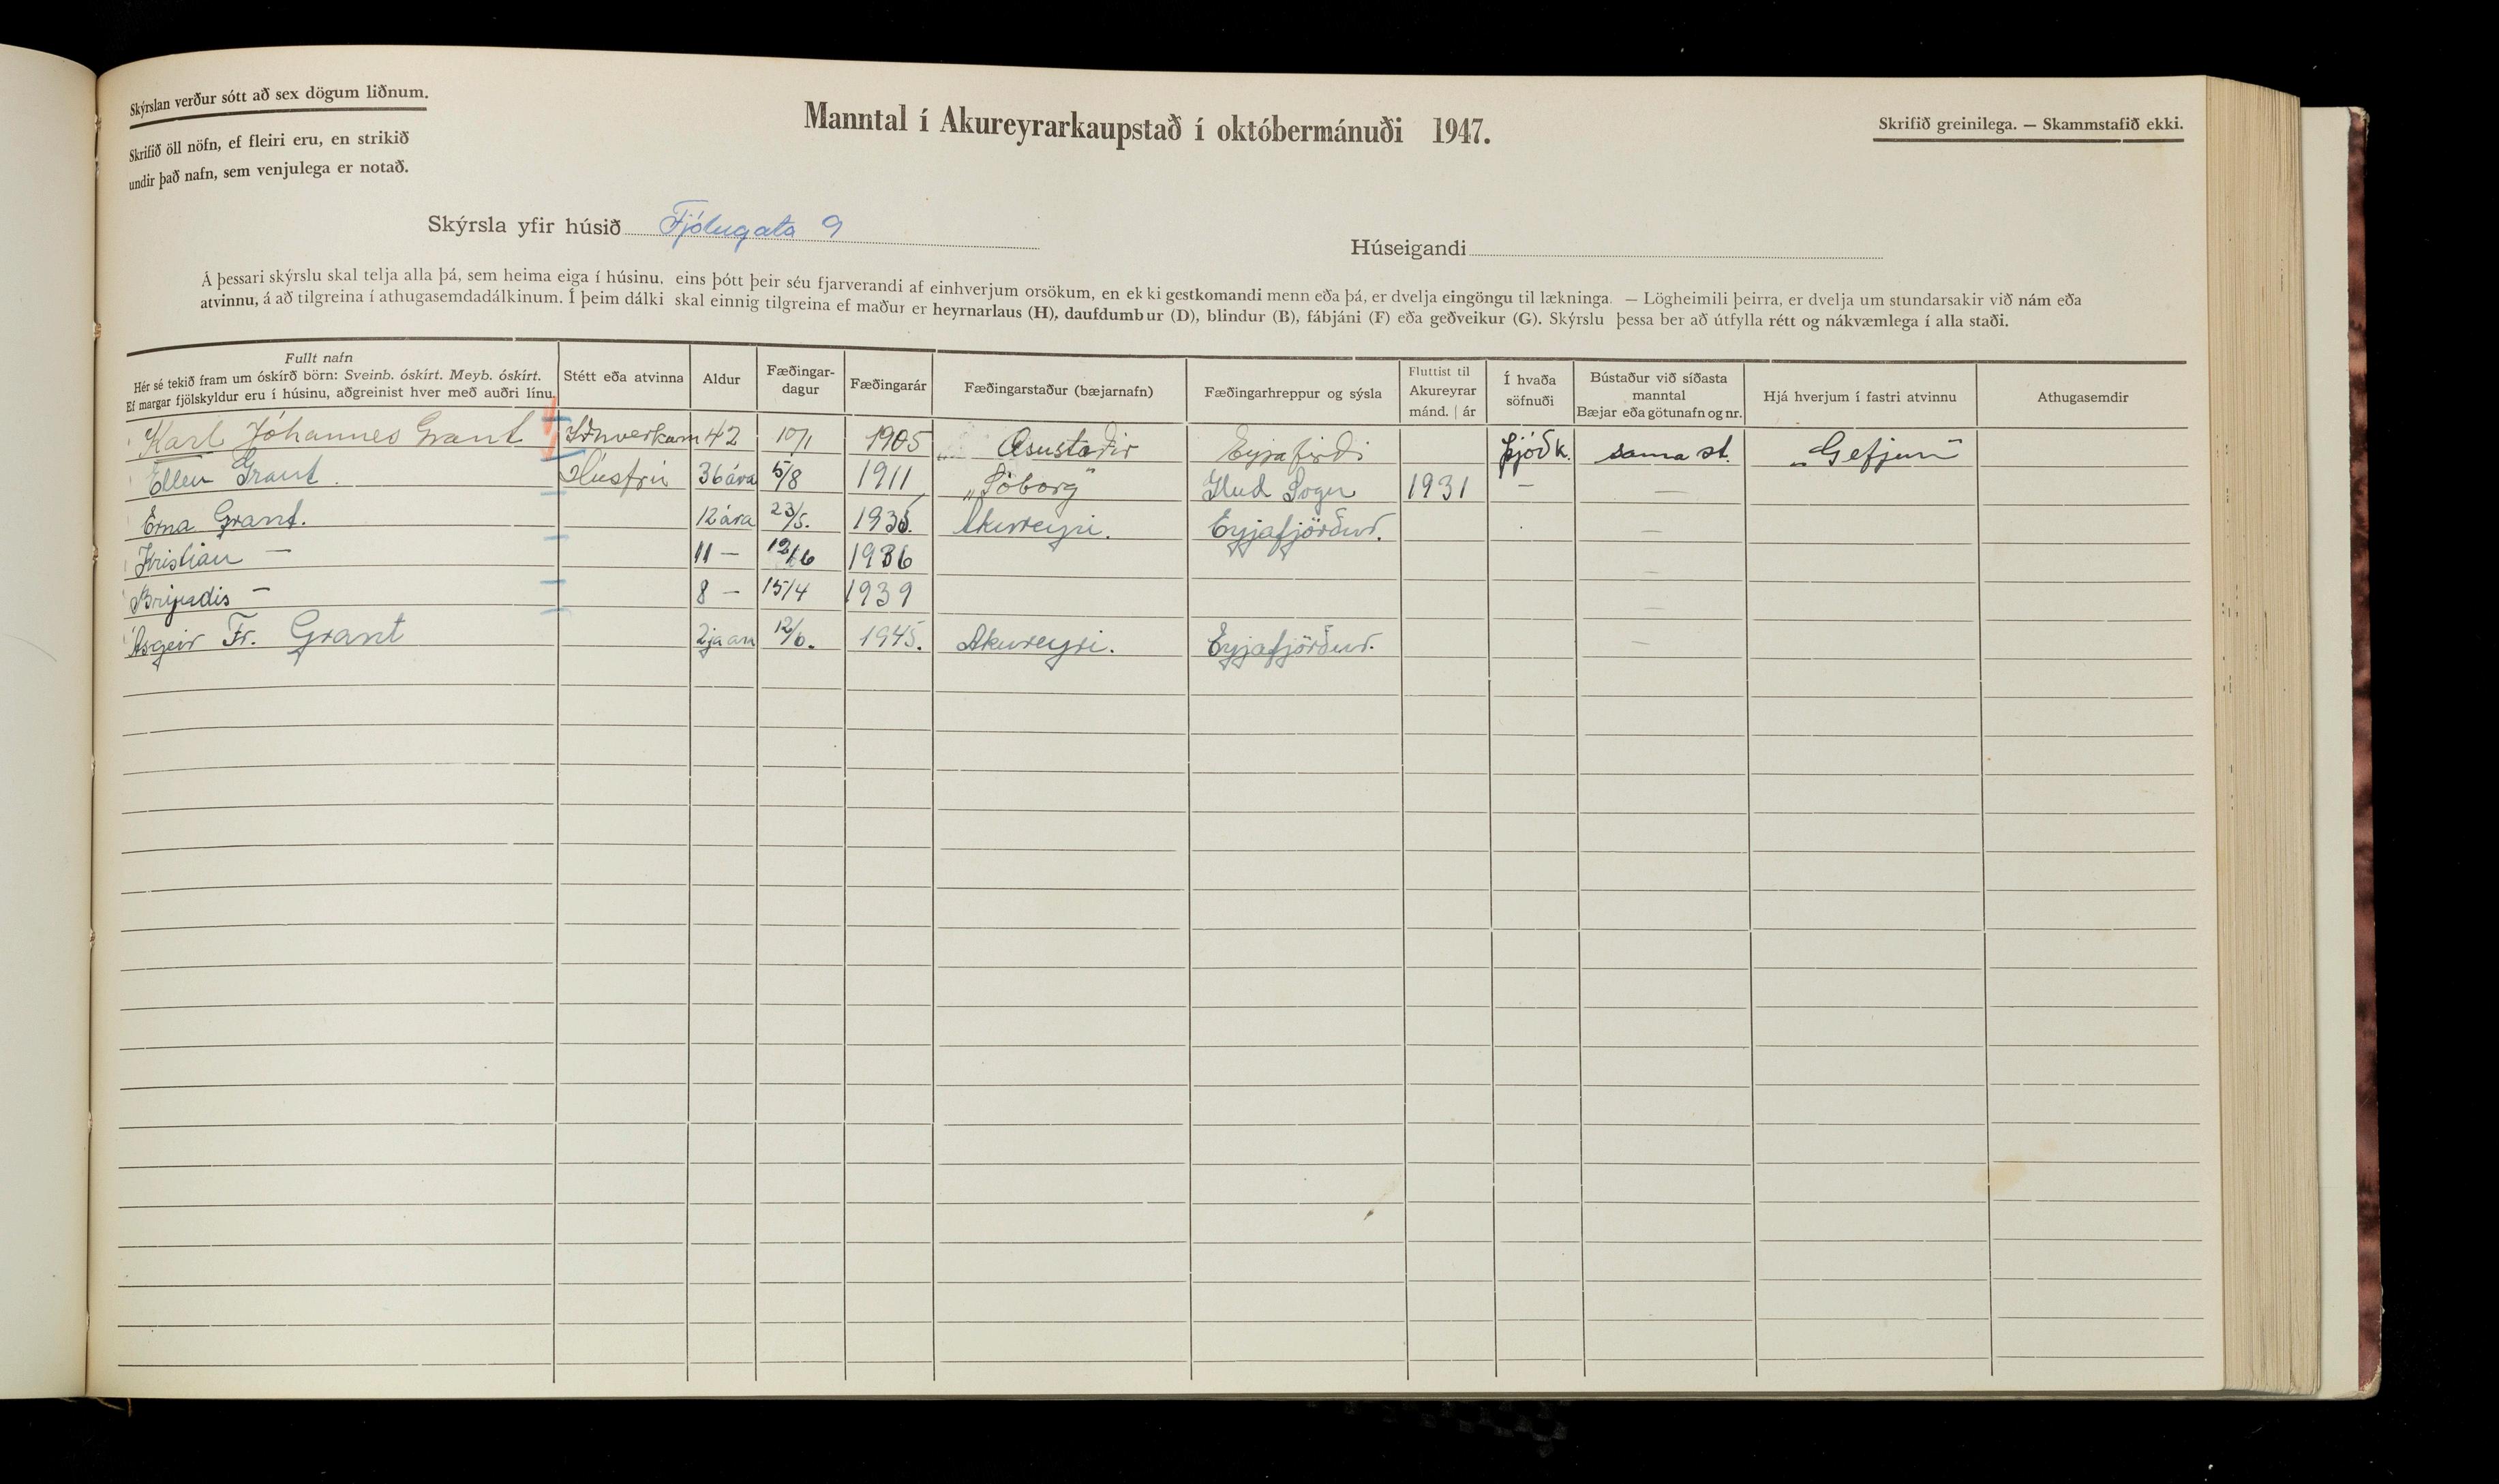 Skýrslan verður sótt að sex dögum liðnum.
Skrifið öll nöfn, ef fleiri eru, en strikið
undir það nafn, sem venjulega er notað.
Manntal í Akureyrarkaupstað í októbermánuði 1947.
Skrifið greinilega. — Skammstafið ekki.
Skýrsla yfir húsið Fjólugata 9
Húseigandi
Á þessari skýrslu skal telja alla þá, sem heima eiga í húsinu, eins þótt þeir séu fjarverandi af einhverjum orsökum, en ekki gestkomandi menn eða þá, er dvelja eingöngu til lækninga. — Lögheimili þeirra, er dvelja um stundarsakir við nám eða
atvinnu, á að tilgreina í athugasemdadálkinum. Í þeim dálki skal einnig tilgreina ef maður er heyrnarlaus (H), daufdumbur (D), blindur (B), fábjáni (F) eða geðveikur (G). Skýrslu þessa ber að útfylla rétt og nákvæmlega í alla staði.
Fullt nafn
Hér sé tekið fram um óskírð börn: Sveinb. óskírt. Meyb. óskírt.
Ef margar fjölskyldur eru í húsinu, aðgreinist hver með auðri línu.
Stétt eða atvinna
Aldur
Fæðingar-
dagur
Fæðingarár
Fæðingarstaður (bæjarnafn)
Fæðingarhreppur og sýsla
Fluttist til
Akureyrar
mánd. | ár
Í hvaða
söfnuði
Bústaður við síðasta
manntal
Bæjar eða götunafn og nr.
Hjá hverjum í fastri atvinnu
Athugasemdir
Karl Jóhannes Grant Iðnverkam 42 10/1 1905 Ásustaðir Eyjafirði þjóðk. sama st. „Gefjun"
Ellen Grant. Húsfrú 36 ára 5/8 1911 „Söborg" Sogn 1931 — —
Erna Grant. 12 ára 23/5. 1935. Akureyri. Eyjafjörður. —
Kristian — 11 — 12/6 1936 —
8 — 15/4 1939 —
Ásgeir Fr. Grant 2ja ára 12/6. 1945. Akureyri. Eyjafjörður. —